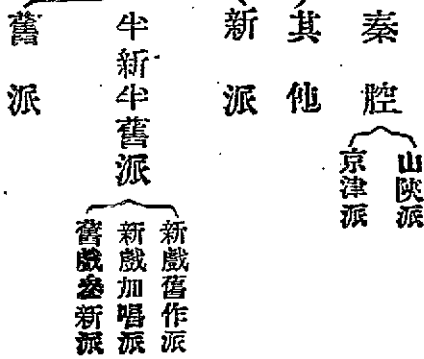 秦腔
山陝派
京津派
其他
新派
半新半舊派
新戲舊作派
新戲加唱派
舊戲參新派
舊派